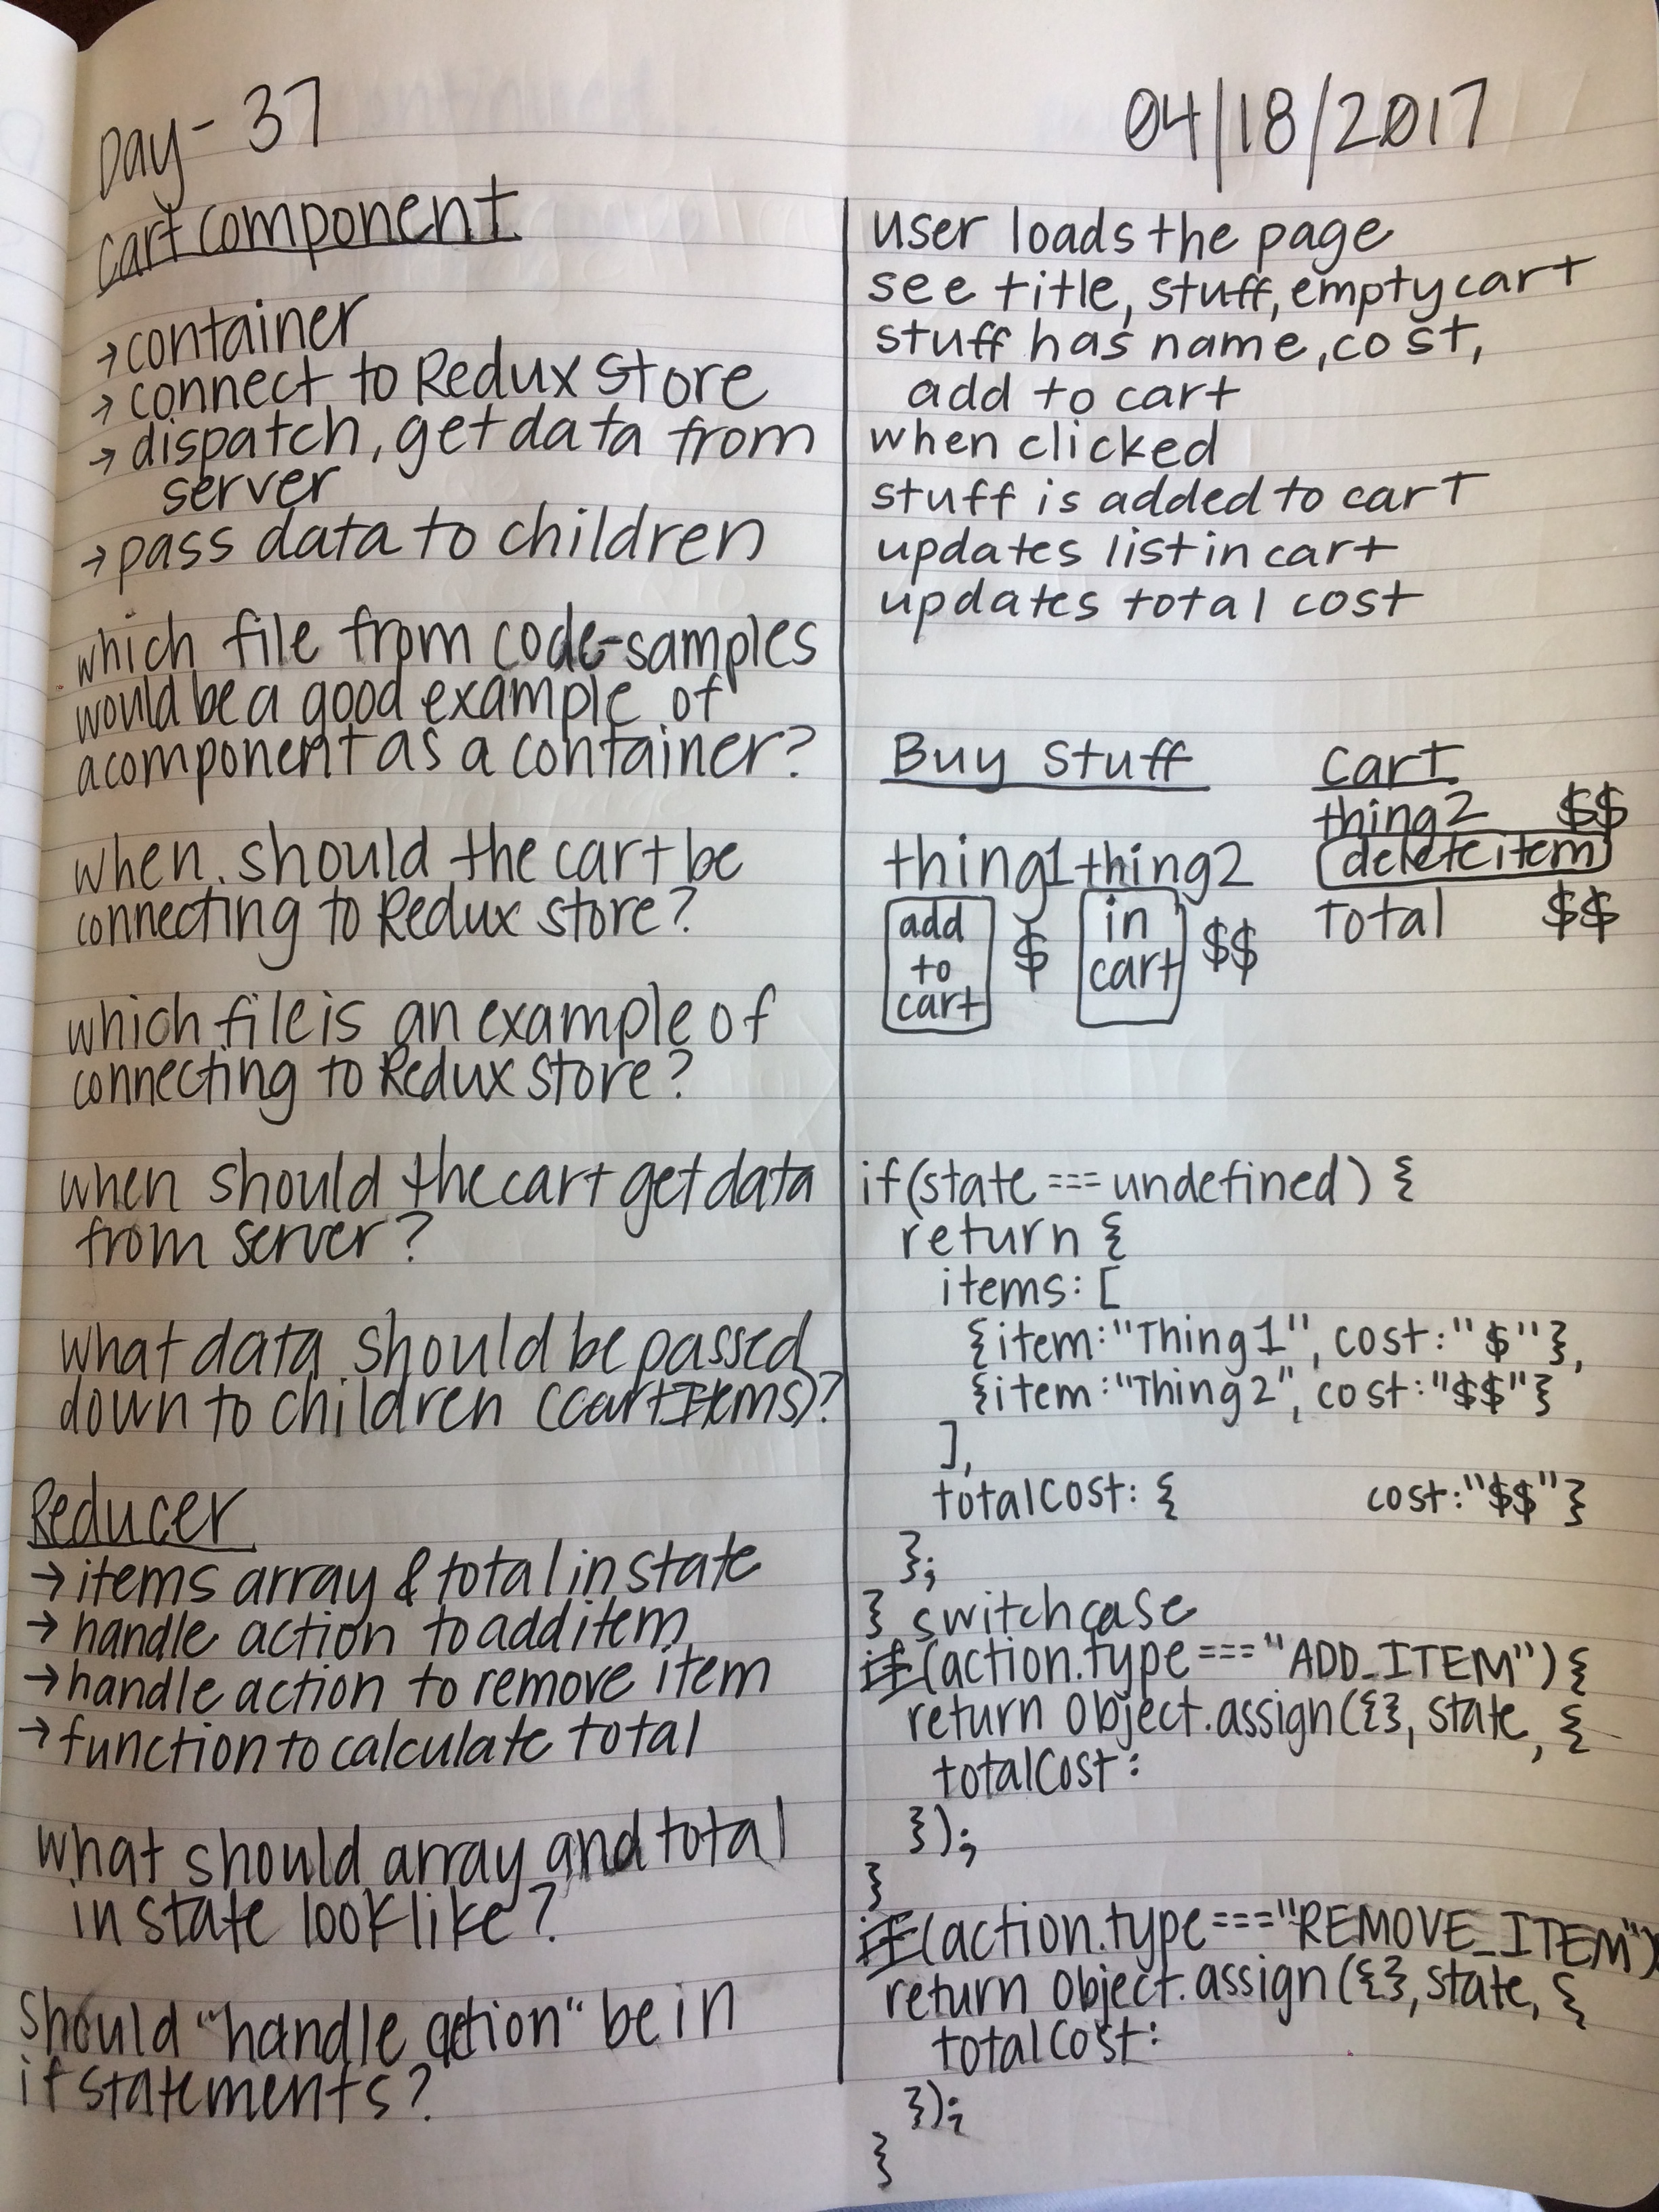 Day - 37
04/18/2017
cart component
→ container
→ connect to Redux store
→ dispatch, get data from
server
→ pass data to children
which file from code-samples
would be a good example of
a component as a container?
when should the cart be
connecting to Redux store?
which file is an example of
connecting to Redux store?
when should the cart get data
from server?
what data should be passed
down to children (cartItems)?
Reducer
→ items array & total in state
→ handle action to add item
→ handle action to remove item
→ function to calculate total
what should array and total
in state look like?
should "handle action" be in
if statements?
user loads the page
see title, stuff, empty cart
stuff has name, cost,
add to cart
when clicked
stuff is added to cart
updates list in cart
updates total cost
Buy Stuff
thing1 thing2
add
to
cart
$
in
cart
$$
Cart
thing2 $$
delete item
Total $$
if(state === undefined) {
return {
items: [
{item:"Thing1", cost:"$"},
{item:"Thing2", cost:"$$"}
],
totalCost: { cost:"$$"}
};
} switch case
if(action.type === "ADD_ITEM") {
return Object.assign({}, state, {
totalCost:
});
}
if(action.type==="REMOVE_ITEM")
return Object.assign({}, state, {
totalCost:
});
}